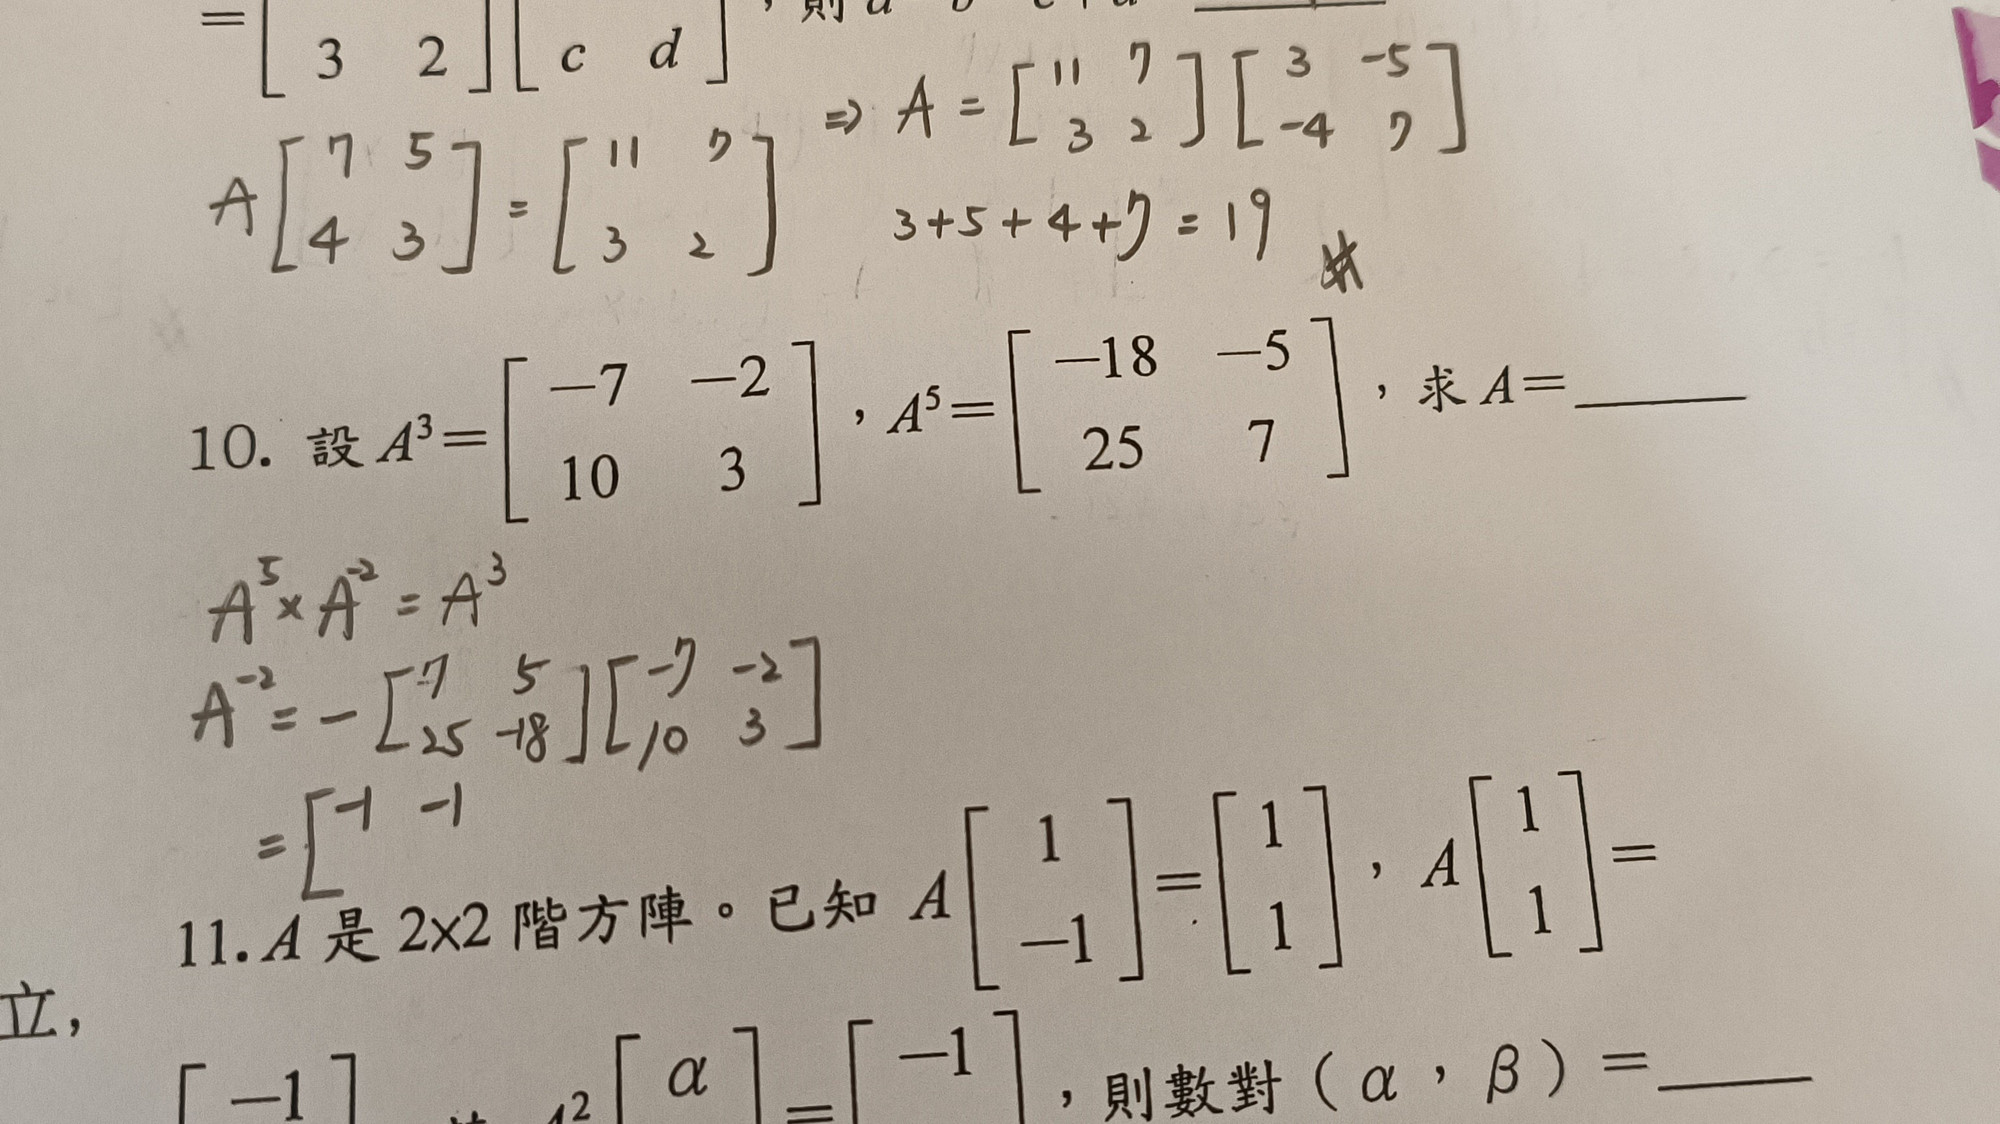 = [ 3 2 ] [ c d ] , 則
⇒ A = [ 11 7 3 2 ] [ 3 -5 -4 7 ]
A [ 7 5 4 3 ] = [ 11 7 3 2 ]
3+5+4+7=19
10. 設 A³= [ —7 —2 10 3 ] , A⁵= [ —18 —5 25 7 ] , 求 A=______
A⁵×A⁻²=A³
A⁻²=- [ -7 5 25 -18 ] [ -7 -2 10 3 ]
= [ -1 -1
11. A 是 2x2 階方陣。已知 A [ 1 —1 ] = [ 1 1 ] , A [ 1 1 ] =
立,
[ —1 ] A² [ α ] = [ —1 ] , 則數對 ( α , β ) =______